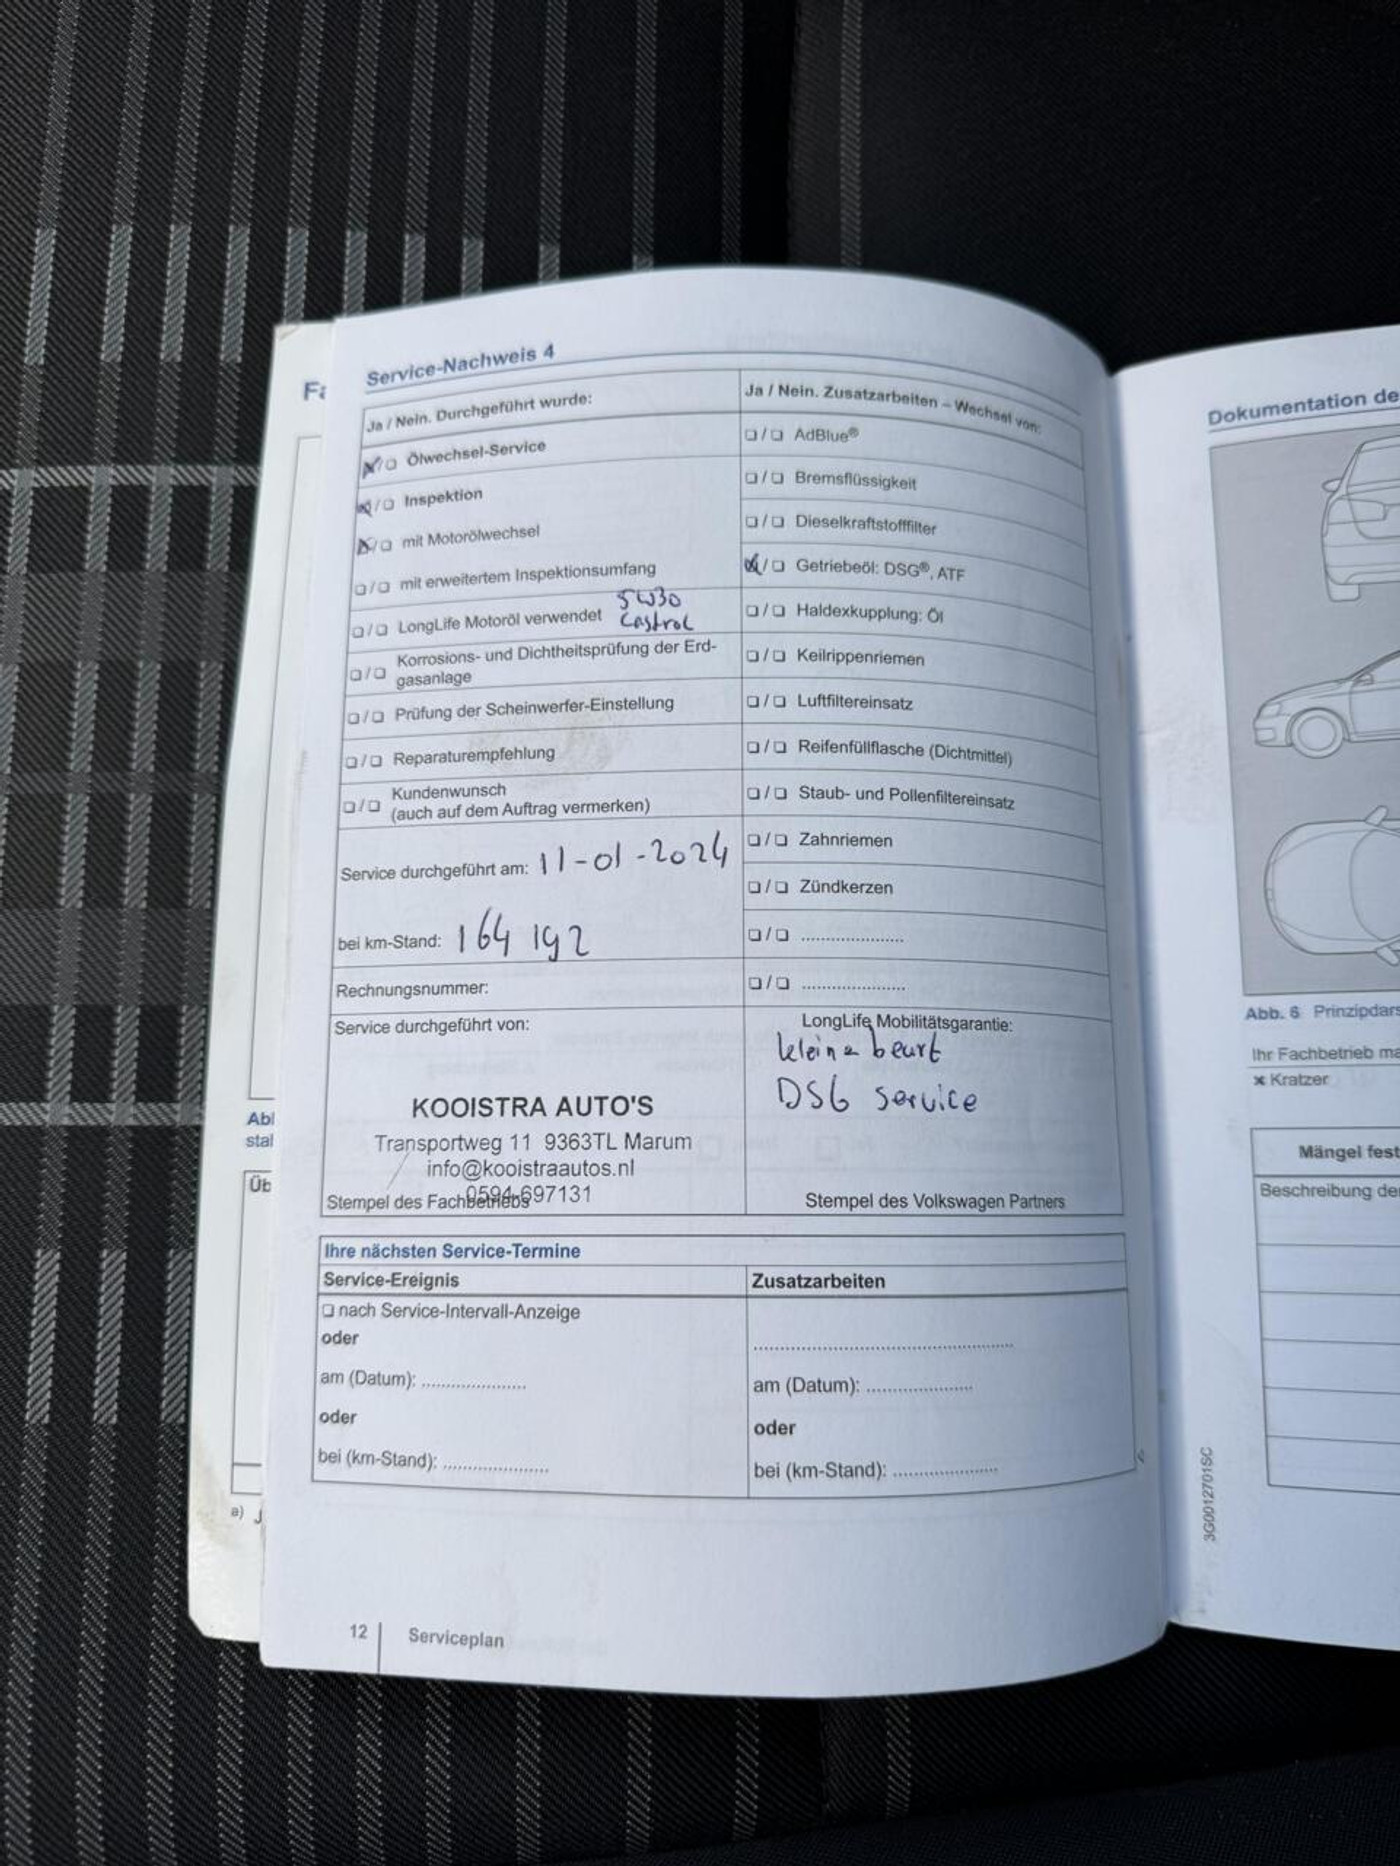 Service-Nachweis 4
Ja / Nein. Durchgeführt wurde:
❑/❑ Ölwechsel-Service
❑/❑ Inspektion
❑/❑ mit Motorölwechsel
❑/❑ mit erweitertem Inspektionsumfang
❑/❑ LongLife Motoröl verwendet 5W30
Castrol
❑/❑ Korrosions- und Dichtheitsprüfung der Erd-
gasanlage
❑/❑ Prüfung der Scheinwerfer-Einstellung
❑/❑ Reparaturempfehlung
❑/❑ Kundenwunsch
(auch auf dem Auftrag vermerken)
Service durchgeführt am: 11-01-2024
bei km-Stand: 164 192
Rechnungsnummer:
Service durchgeführt von:
KOOISTRA AUTO'S
Transportweg 11 9363TL Marum
info@kooistraautos.nl
0594-697131
Stempel des Fachbetriebs
Ja / Nein. Zusatzarbeiten – Wechsel von:
❑/❑ AdBlue®
❑/❑ Bremsflüssigkeit
❑/❑ Dieselkraftstofffilter
❑/❑ Getriebeöl: DSG®, ATF
❑/❑ Haldexkupplung: Öl
❑/❑ Keilrippenriemen
❑/❑ Luftfiltereinsatz
❑/❑ Reifenfüllflasche (Dichtmittel)
❑/❑ Staub- und Pollenfiltereinsatz
❑/❑ Zahnriemen
❑/❑ Zündkerzen
❑/❑ .....................
❑/❑ .....................
LongLife Mobilitätsgarantie:
kleine beurt
DSG service
Stempel des Volkswagen Partners
Ihre nächsten Service-Termine
Service-Ereignis
❑ nach Service-Intervall-Anzeige
oder
am (Datum): .....................
oder
bei (km-Stand): .....................
Zusatzarbeiten
.....................
am (Datum): .....................
oder
bei (km-Stand): .....................
12 Serviceplan
Fa
Abb
stal
Üb
a) J
Dokumentation de
Abb. 6 Prinzipdars
Ihr Fachbetrieb ma
× Kratzer
Mängel fest
Beschreibung der
3G0012701SC